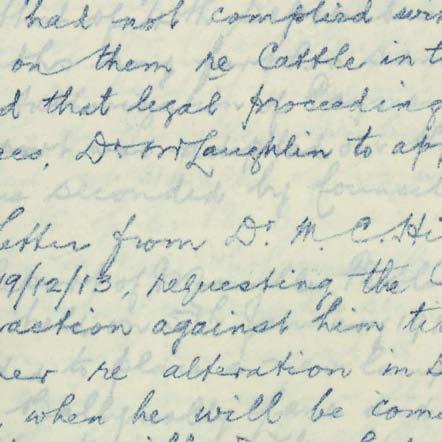 had not complied wi
on them re Cattle in t
d that legal proceeding
ces, Dr McLaughlin to ap
seconded by Council
Letter from Dr. M. C. Hi
19/12/13, requesting the C
action against him ti
er re alteration in D
, when he will be com